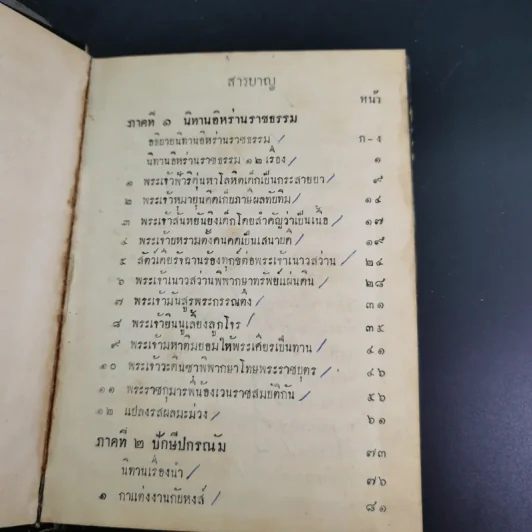 สารบาญ
หน้า
ภาคที่ ๑ นิทานอิหร่านราชธรรม
อธิบายนิทานอิหร่านราชธรรม ก-ง
นิทานอิหร่านราชธรรม ๑๒ เรื่อง ๑
๑ พระเจ้าฟ้ารีดุ่นหาโลหิตเด็กเป็นกระสายยา ๙
๒ พระเจ้าหุมายูนคิดเก็บภาษีผลทับทิม ๑๔
๓ พระเจ้าสันหยันยิงเด็กโดยสำคัญว่าเป็นเนื้อ ๑๗
๔ พระเจ้ายหรามตั้งคนคดเป็นเสนาบดี ๑๙
๕ สัตว์เดียรัจฉานร้องทุกข์ต่อพระเจ้าเนาวสว่าน ๒๔
๖ พระเจ้าเนาวสว่านพิพากษาทรัพย์แผ่นดิน ๒๘
๗ พระเจ้ามันสูรพระกรรณตึง ๓๑
๘ พระเจ้ายินนูเลี้ยงลูกโจร ๓๕
๙ พระเจ้ามหาติมยอมให้พระเศียรเป็นทาน ๔๑
๑๐ พระเจ้าวะดินซุาพิพากษาโทษพระราชบุตร ๔๖
๑๑ พระราชกุมารพี่น้องเวนราชสมบัติกัน ๕๖
๑๒ แปลงรสผลมะม่วง ๖๑
ภาคที่ ๒ ปักษีปกรณัม ๗๓
นิทานเรื่องนำ ๗๖
๑ กาแต่งงานกับหงส์ ๘๑